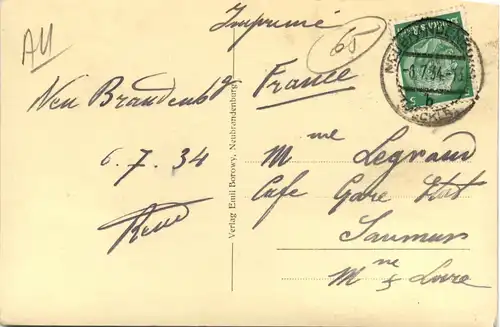 All
Imprimé
65
France
Neu Brandenbg
6. 7. 34
Mme Legrand
Cafe Gare Etat
Saumur
Mne & Loire
Verlag Emil Borowy, Neubrandenburg
-6.7.34-13
b